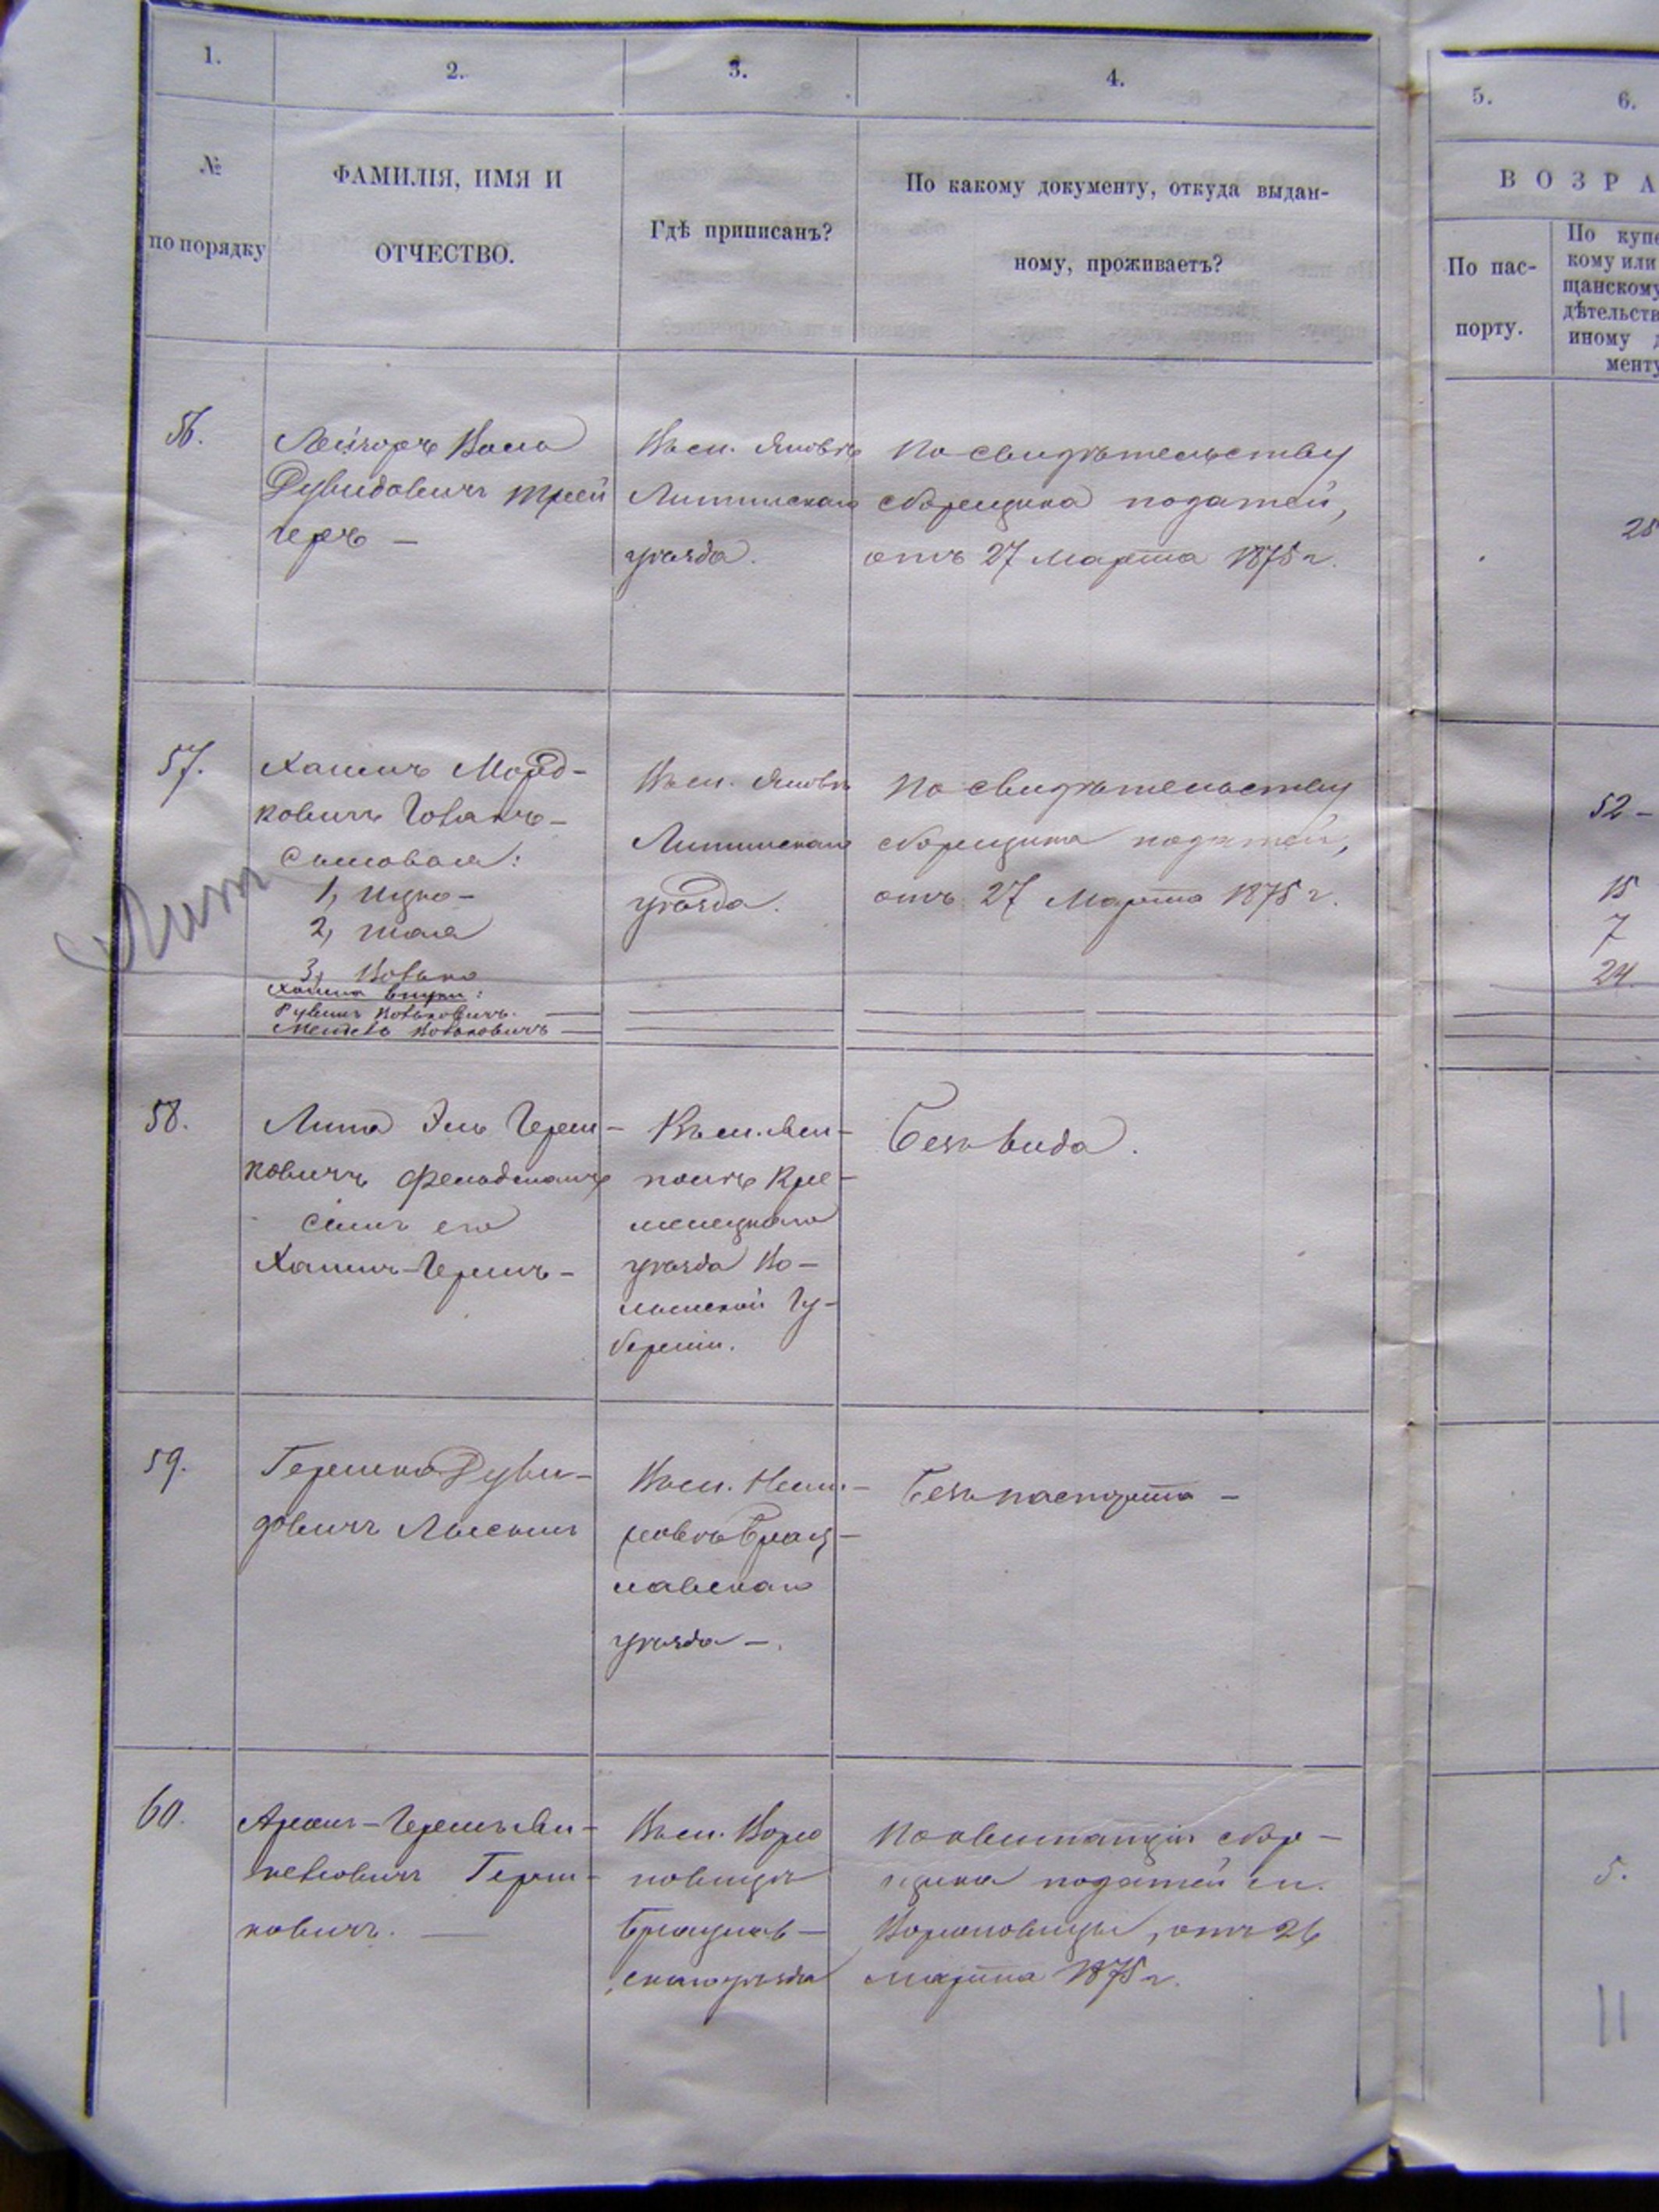 1.
2.
3.
4.
5.
6.
№
по порядку
ФАМИЛІЯ, ИМЯ И
ОТЧЕСТВО.
Гдѣ приписанъ?
По какому документу, откуда выдан-
ному, проживаетъ?
ВОЗРА
По пас-
порту.
По купе
кому или
щанскому
дѣтельств
иному д
менту
56.
Лейзоръ Волъ
Дувидовичъ
черъ —
Въ м. Яновѣ
Литинскаго
уѣзда.
По свидѣтельству
сборщика податей,
отъ 27 Марта 1875 г.
57.
Хаимъ Морд-
ковичъ
Сыновья:
1, Ицко —
2, Шая
3, Вовько
Хаима внуки:
Рувинъ Вовьковичъ.
Мендель Вовьковичъ
Въ м. Яновѣ
Литинскаго
уѣзда.
По свидѣтельству
сборщика податей,
отъ 27 Марта 1875 г.
52 —
15
7
24.
Лит
58.
Липа Эль Герш-
ковичъ Фельдманъ
сынъ его
Хаимъ-Гершъ —
Въ м. Ям-
полѣ Кре-
менецкаго
уѣзда Во-
лынской Гу-
берніи.
Безъ вида.
59.
Гершко Дуви-
довичъ
Въ м. Неми-
ровѣ Брац-
лавскаго
уѣзда —.
Безъ паспорта —
60.
Аронъ-Гершъ
Герш-
ковичъ. —
Въ м. Воро
новицѣ
Брацлав-
скаго уѣзда
По квитанціи сбор-
щика податей м.
Вороновицы, отъ 26
Марта 1875 г.
5.
11